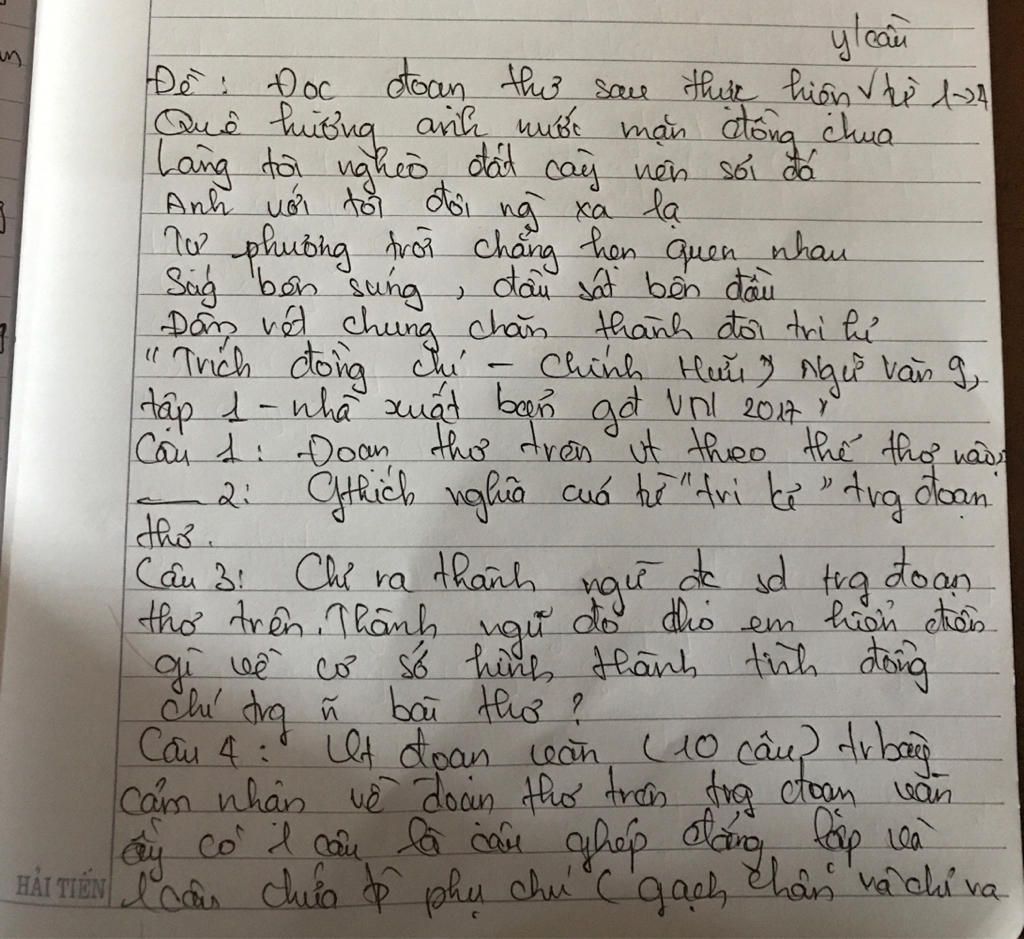 y/cầu
Đề: Đọc đoạn thơ sau thực hiện √ từ 1→4
Quê hương anh nước mặn đồng chua
Làng tôi nghèo đất cày nên sỏi đá
Anh với tôi đôi ng xa lạ
Tự phương trời chẳng hẹn quen nhau
Súg bên súng, đầu sát bên đầu
Đêm rét chung chăn thành đôi tri kỉ
"Trích đồng chí - Chính Hữu) Ngữ văn 9,
tập 1 - nhà xuất bản gd VN 2017)
Câu 1: Đoạn thơ trên vt theo thể thơ nào?
— 2: Gthích nghĩa cuả từ "tri kỉ" trg đoạn
thơ.
Câu 3: Chỉ ra thành ngữ đc sd trg đoạn
thơ trên. Thành ngữ đó cho em hiểu điều
gì về cơ sở hình thành tình đồng
chí trg ~ bài thơ?
Câu 4: Vt đoạn văn (10 câu) tr bày
cảm nhận về đoạn thơ trên trg đoạn văn
ấy có 1 câu là câu ghép đẳng lập và
1 câu chứa tp phụ chú (gạch chân và chỉ ra
HẢI TIẾN